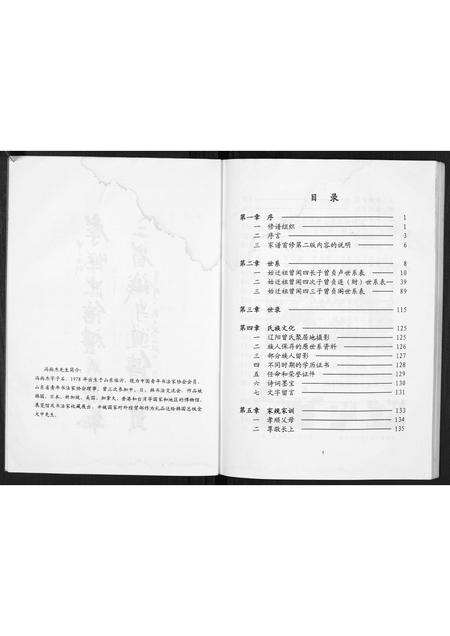 冯尚杰先生简介:
冯尚杰字子石，1978年出生于山东临沂，现为中国青年书法家协会会员，
山东省青年书法家协会理事，曾三次参加中、日、韩书法交流会，作品被
韩国、日本、新加坡、美国、加拿大、香港和台湾等国家和地区的博物馆、
展览馆及书法家收藏展出，并被国家对外经贸部作为礼品送给韩国总统金
大中先生。
目 录
第一章 序 1
一 修谱组织 1
二 序言 3
三 家谱首修第二版内容的说明 6
第二章 世系 8
一 始迁祖曾闻四长子曾贞卢世系表 10
二 始迁祖曾闻四次子曾贞进（财）世系表 39
三 始迁祖曾闻四三子曾贞阁世系表 89
第三章 世录 115
第四章 氏族文化 125
一 辽阳曾氏聚居地摄影 125
二 族人保存的原世系资料 126
三 部分族人留影 127
四 不同时期的学历证书 128
五 任命和荣誉证件 129
六 诗词墨宝 130
七 文字留言 131
第五章 家规家训 133
一 孝顺父母 134
二 尊敬长上 135
1